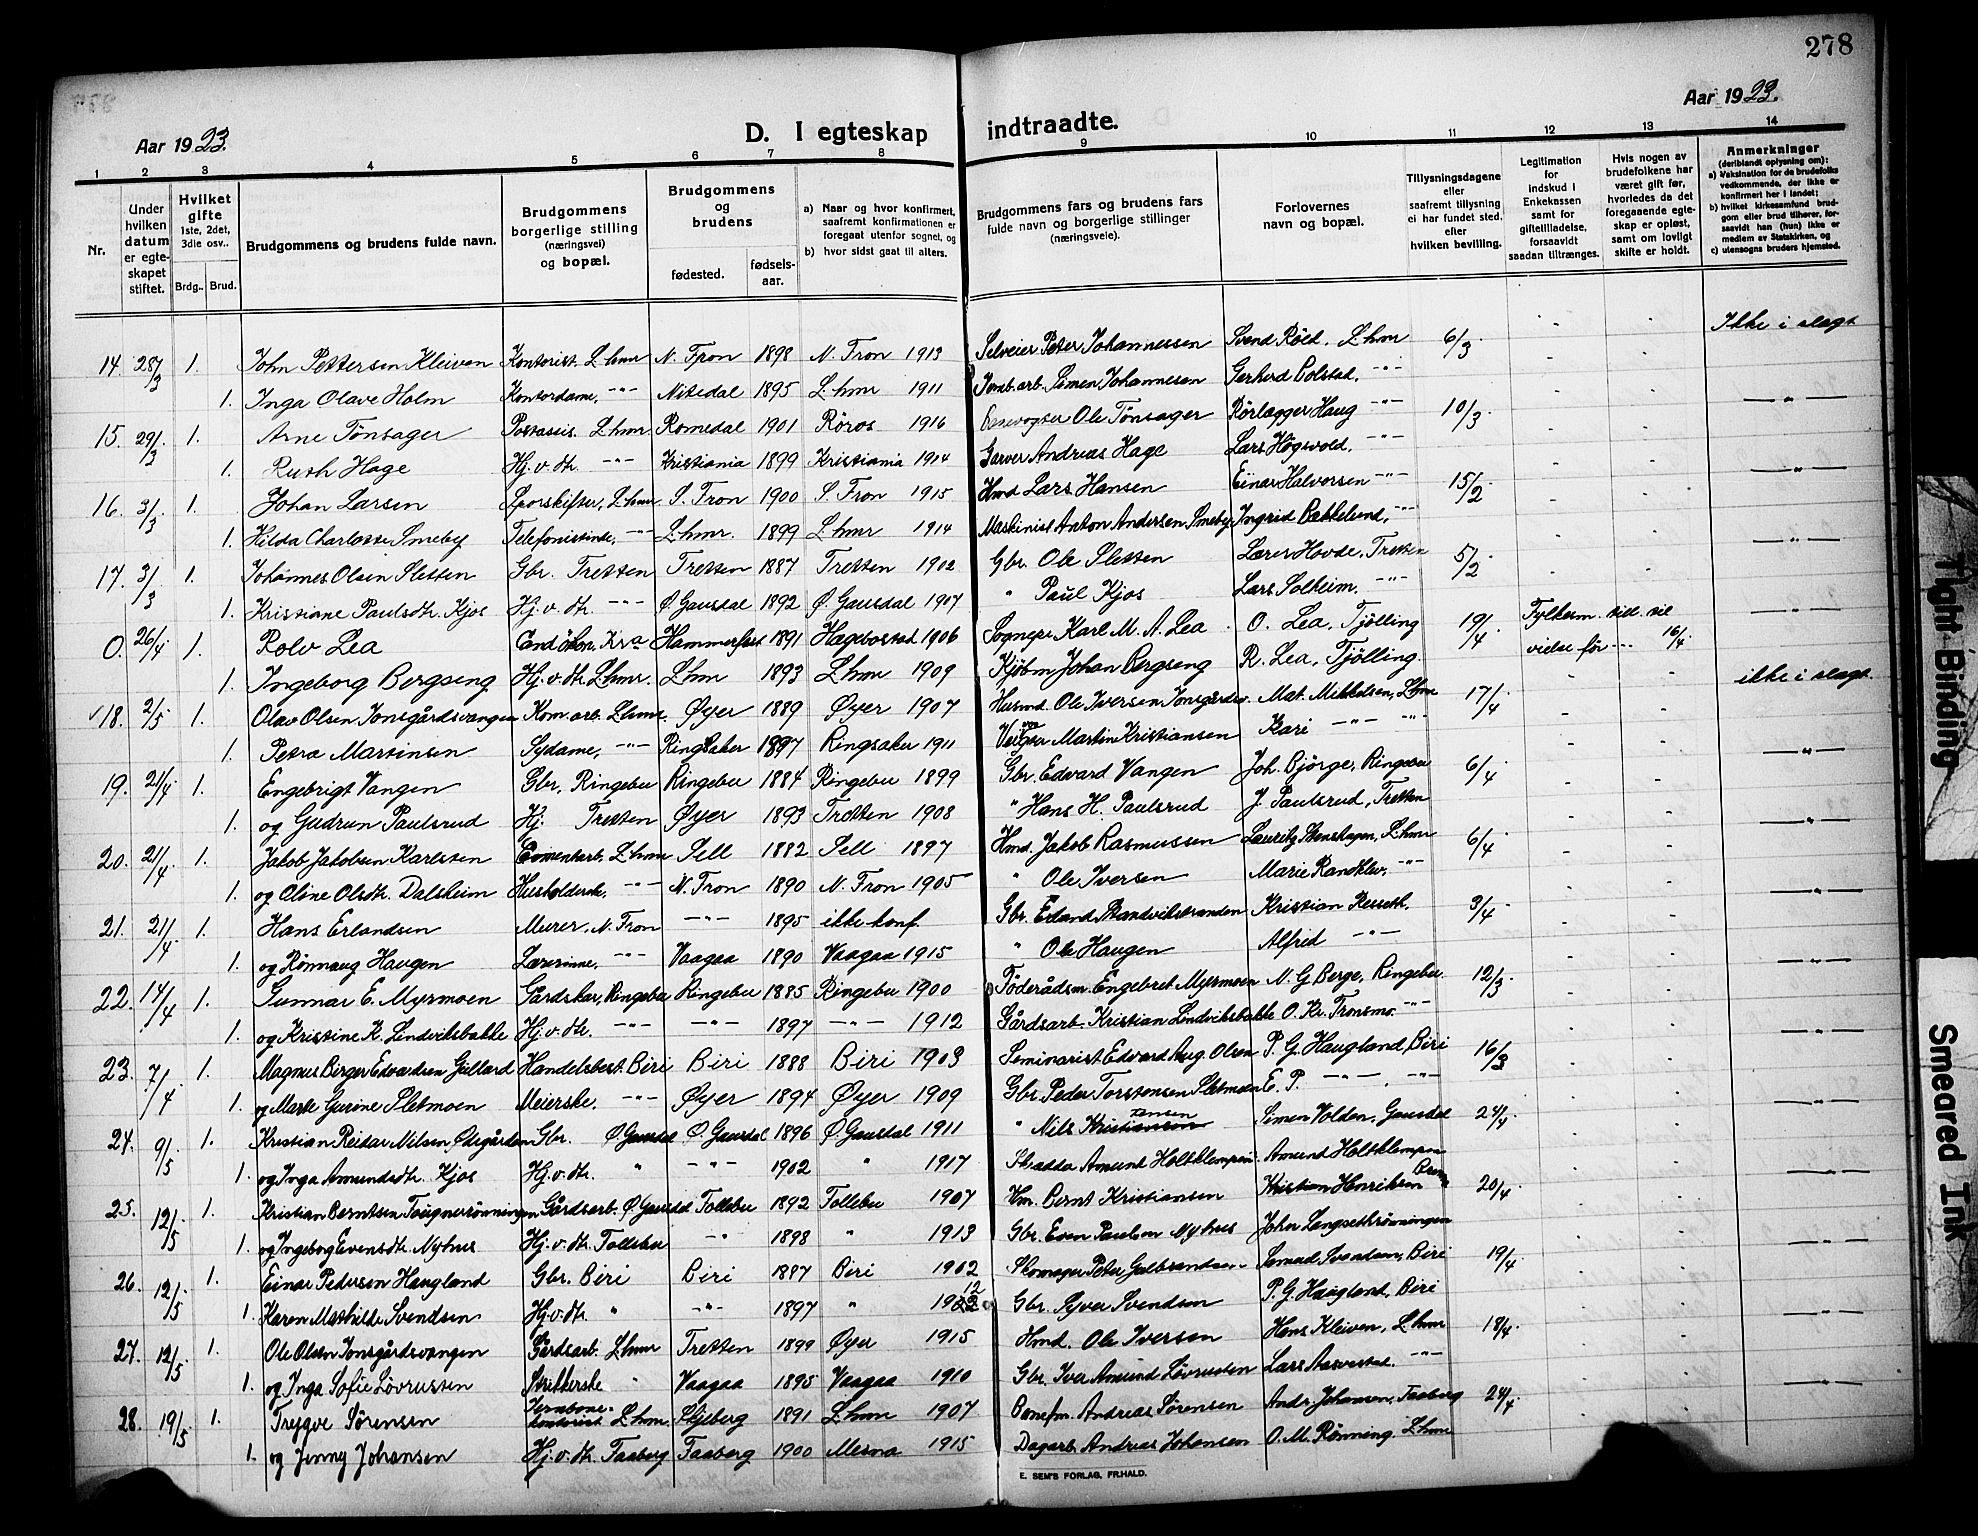 278
Aar 1923.
D. I egteskap indtraadte.
Aar 1923.
1 2 3 4 5 6 7 8 9 10 11 12 13 14
Nr.
Under hvilken datum er egteskapet stiftet.
Hvilket gifte 1ste, 2det, 3die osv..
Brdg.. Brud.
Brudgommens og brudens fulde navn.
Brudgommens borgerlige stilling (næringsvei) og bopæl.
Brudgommens og brudens
fødested. fødsels-aar.
a) Naar og hvor konfirmert, saafremt konfirmationen er foregaat utenfor sognet, og
b) hvor sidst gaat til alters.
Brudgommens fars og brudens fars fulde navn og borgerlige stillinger (næringsveie).
Forlovernes navn og bopæl.
Tillysningsdagene eller saafremt tillysning ei har fundet sted. efter hvilken bevilling.
Legitimation for indskud i Enkekassen samt for giftetilladelse, forsaavidt saadan tiltrænges.
Hvis nogen av brudefolkene har været gift før, hvorledes da det foregaaende egteskap er opløst, samt om lovligt skifte er holdt.
Anmerkninger (deriblandt oplysning om): a) Vaksination for de brudefolks vedkommende, der ikke er konfirmert her i landet; b) hvilket kirkesamfund brudgom eller brud tilhører, forsaavidt han (hun) ikke er medlem av Statskirken, og c) utensogns bruders hjemsted.
14. 28/3 1. John Pettersen Kleiven Kontorist. L.hmr N. Fron 1898 N. Fron 1913 Selveier Peter Johannessen Svend Røed, L.hmr 6/3 Ikke i slegt
1. Inga Olave Holm Kontordame, -"- Nitedal 1895 L.hmr 1911 Simen Johannesen Gerherd Bolstad, -"-
15. 29/3 1. Arne Tönsager L.hmr Romedal 1901 Röros 1916 Banevogter Ole Tönsager Rörlægger Haug -"- 10/3 -"-
1. Ruth Hage Hj.v.dtr. -"- Kristiania 1899 Kristiania 1914 Garver Andreas Hage Lars Högsvold, -"-
16. 3/3 1. Johan Larsen Sporskifter, L.hmr S. Fron 1900 S. Fron 1915 Hmd Lars Hansen Einar Halvorsen -"- 15/2 -"-
1. Hilda Charlotte Smeby Telefonistinde, -"- L.hmr. 1899 L.hmr 1914 Maskinist Anton Andersen Smeby Ingrid Bakkelund, -"-
17. 3/3 1. Johannes Olsen Sletten Gbr. Tretten Tretten 1887 Tretten 1902 Gbr. Ole Sletten Lærer Hovde, Tretten 5/2 -"-
1. Kristiane Paulsdtr. Kjos Hj.v.dtr. -"- Ø. Gausdal 1892 Ø. Gausdal 1907 " Paul Kjos Lars Solheim, -"-
0. 26/4 1. Rolv Lea Cand ökon. Kra Hammerfest 1891 Hægebostad 1906 Sognepr Karl M. A. Lea O. Lea, Tjölling 19/4 Fylkesm. till. til -"-
1. Ingeborg Bergseng Hj.v.dtr. L.hmr. L.hmr 1893 L.hmr 1909 Kjöbm Johan Bergseng R. Lea, Tjölling. vielse før -"- 16/4 ikke i slegt
18. 2/5 1. Olav Olsen Jonsgårdsvangen Kom.arb. L.hmr. Øyer 1889 Øyer 1907 Husmd Ole Iversen Jonsgårdsv. Mat. Mikkelsen, L.hmr 17/4
1. Petra Martinsen Sydame, -"- Ringsaker 1897 Ringsaker 1911 Martin Kristiansen Kari -"- -"-
19. 21/4 1. Engebrigt Vangen Gbr, Ringebu Ringebu 1884 Ringebu 1899 Gbr. Edvard Vangen Joh. Bjørge, Ringebu 6/4 -"-
1. og Gudrun Paulsrud Hj. Tretten Øyer 1893 Tretten 1908 " Hans H. Paulsrud J. Paulsrud, Tretten
20. 21/4 1. Jakob Jakobsen Karlsten Cementarb. L.hmr Sell 1882 Sell 1897 Hmd. Jakob Rasmussen Lauritz Stenshagen, L.hmr 6/4 -"-
1. og Oline Olsdtr. Dalsheim Husholderske, -"- N. Fron 1890 N. Fron 1905 " Ole Iversen Marie Randklev, -"-
21. 21/4 1. Hans Erlandsen Murer, N. Fron -"- 1895 ikke konf. Gbr. Erland Kristian 3/4 -"-
1. og Rönnaug Haugen Lærerinne, -"- Vaagaa 1890 Vaagaa 1915 " Ole Haugen Alfred -"-
22. 14/4 1. Gunnar E. Myrmoen Gårdskar, Ringebu Ringebu 1885 Ringebu 1900 Föderådsm. Engebret Myrmoen N. G. Berge, Ringebu 12/3 -"-
1. og Kristine K. Lendviksbakke Hj.v.dtr. -"- -"- 1897 -"- 1912 Gårdsarb. Kristian Lendviksbakke O. Kr. Fronsmo. -"-
23. 7/4 1. Magnus Birger Edvardsen Gullord Handelsbest. Biri Biri 1888 Biri 1903 Seminarist Edvard Aug. Olsen P. G. Haugland, Biri 16/3 -"-
1. og Marte Gurine Sletmoen Meierske, -"- Øyer 1894 Øyer 1909 Gbr. Peder Torstensen Sletmoen E. P. -"- -"-
24. 9/5 1. Kristian Reidar Nilsen Ødegården Gbr. Ø Gausdal Ø Gausdal 1896 Ø Gausdal 1911 " Nils Kristiansen Simen Volden, Gausdal 24/4 -"-
1. og Inga Amundsdtr. Kjos Hj.v.dtr. " -"- 1902 " 1917 Amund Holtklempen Amund Holtklempen
25. 12/5 1. Kristian Berntsen Gårdsarb. Ø Gausdal Follebu 1892 Follebu 1907 Hm. Bernt Kristiansen Kristian Henriksen 20/4 -"-
1. og Ingeborg Evensdtr. Nyhus Hj.v.dtr. Follebu -"- 1898 " 1913 Gbr. Even Paulsen Nyhus John Langsethrönningen
26. 12/5 1. Einar Pedersen Haugland Gbr. Biri Biri 1887 Biri 1902 Skomager Peter Gulbrandsen Svendsen, Biri 19/4 -"-
1. Karen Mathilde Svendsen Hj.v.dtr. " -"- 1897 " 1912 Gbr. Syver Svendsen P. G. Haugland, Biri
27. 12/5 1. Ole Olsen Jonsgårdsvangen Gårdsarb. L.hmr Tretten 1899 Øyer 1915 Hmd. Ole Iversen Hans Kleiven, L.hmr 18/4 -"-
1. og Inga Sofie Lövrusten Strikkerske " Vaagaa 1895 Vaagaa 1910 Gbr. Iver Amund Lövrusten Lars Aarvestad. -"-
28. 19/5 1. Trygve Sörensen Jernbane-kontorist L.hmr Stjeberg 1891 L.hmr 1907 Banefm. Andreas Sörensen Andr. Johansen, Faaberg 24/4 -"-
1. og Jenny Johansen Hj.v.dtr. Faaberg Faaberg 1900 Mesna 1915 Dagarb. Andreas Johansen O. M. Rönning L.hmr
E. SEM'S FORLAG, FR.HALD.
Tight Binding
Smeared Ink